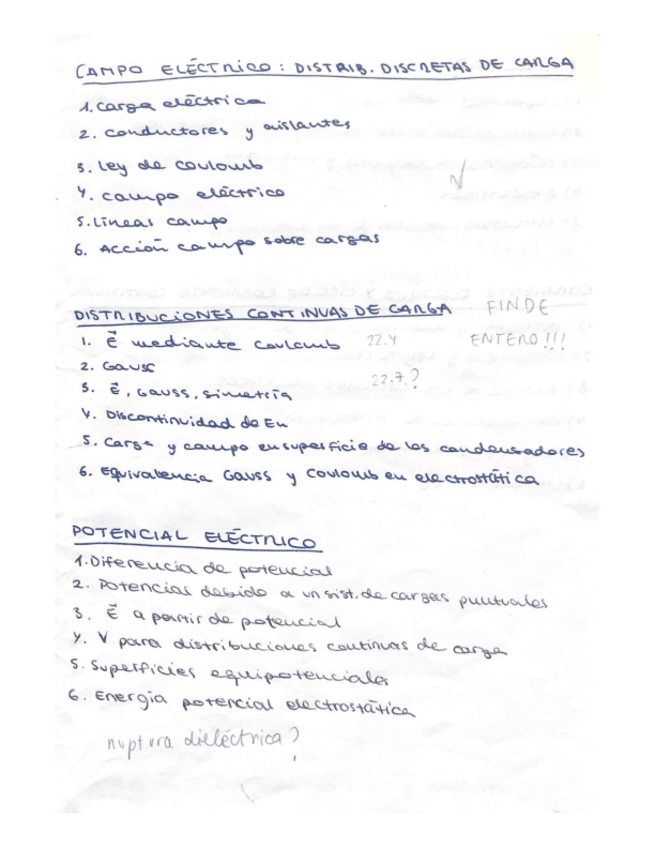 CAMPO ELÉCTRICO: DISTRIB. DISCRETAS DE CARGA
1. Carga eléctrica
2. Conductores y aislantes
3. Ley de Coulomb
4. Campo eléctrico
5. Líneas campo
6. Acción campo sobre cargas
DISTRIBUCIONES CONTINUAS DE CARGA FINDE
1. E⃗ mediante Coulomb 22.4 ENTERO!!!
2. Gauss
3. E⃗, Gauss, simetría 22.7?
4. Discontinuidad de En
5. Carga y campo en superficie de los condensadores
6. Equivalencia Gauss y Coulomb en electrostática
POTENCIAL ELÉCTRICO
1. Diferencia de potencial
2. Potencial debido a un sist. de cargas puntuales
3. E⃗ a partir de potencial
4. V para distribuciones continuas de carga
5. Superficies equipotenciales
6. Energía potencial electrostática
ruptura dieléctrica?